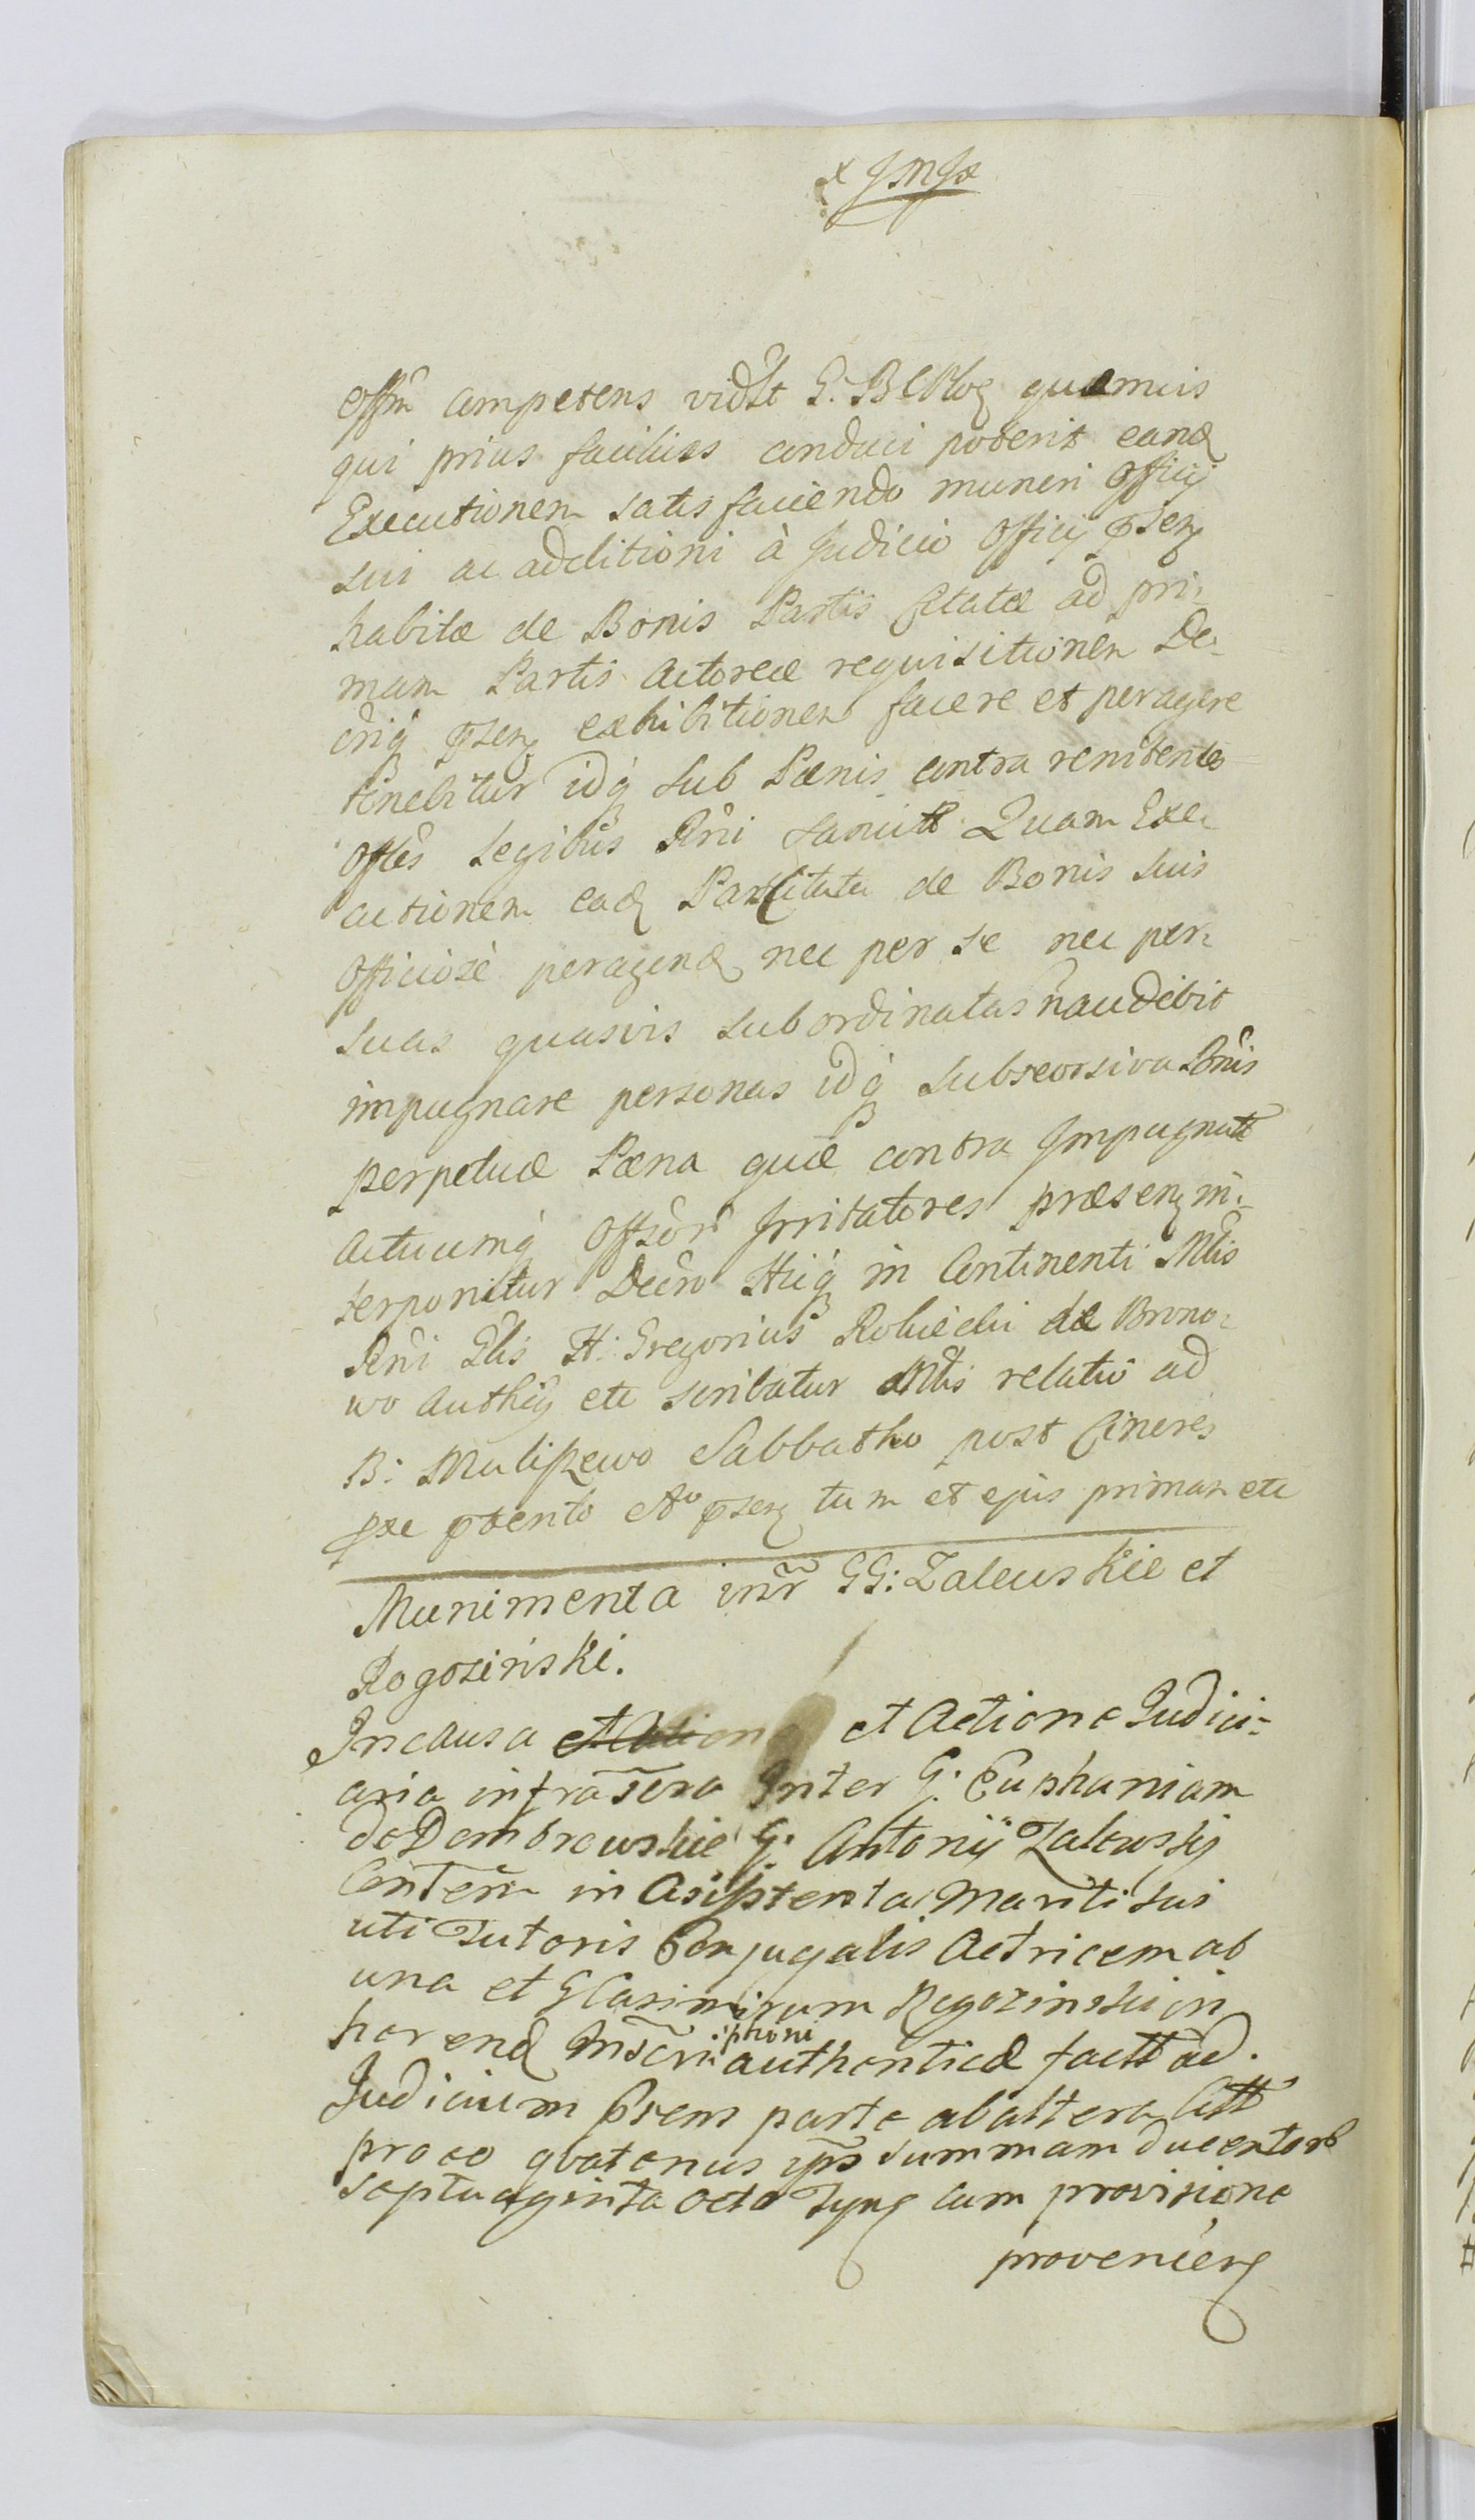 Offm competens vidlt G. B quamvis
qui prius facilius conduci poterit eand
Executionem satis faciendo muneri Officij
sui ac additioni à Judicio Officij psen
habitæ de Bonis Partis Citatæ ad pri-
mam Partis Actoreæ requisitionem De-
criq psen exhibitionem facere et peragere
tenebitur idq sub Pænis contra renitentes
Offles Legibus Rni sancitt Quam Exe-
cutionem ead Pars Citata de Bonis suis
Officiosè peragend nec per se nec per
suas quasvis subordinatas n audebit
impugnare personas idq sub
perpetuæ Pæna quæ contra Impugnatt
actuumq Irritatores præsen in-
terponitur Decro Hicq in Continenti Mtis
Rni Glis H: Gregorius Robiecki de Brono-
wo Authen etc scribatur Mtis relatio ad
B: Maliszewo Sabbatho post Cineres
pxe ptento Ao psen tum et ejus primam etc
Munimenta intr GG: Zalewskie et
Rogozinski.
In causa et Action et Actione Judici-
aria infra scra Inter G: Euphaniam
de Dombrowskie G: Antonij Zalewskij
Conten in Asisstentia Mariti sui
uti Tutoris Conjugalis Actricem ab
una et G Casimirum Rogozinski in
horend Inscriptioni authenticæ fact ad
Judicium prens parte ab altera Citt
pro eo quatenus ips summam ducentor
septuaginta octo Tynf cum provisione
provenien